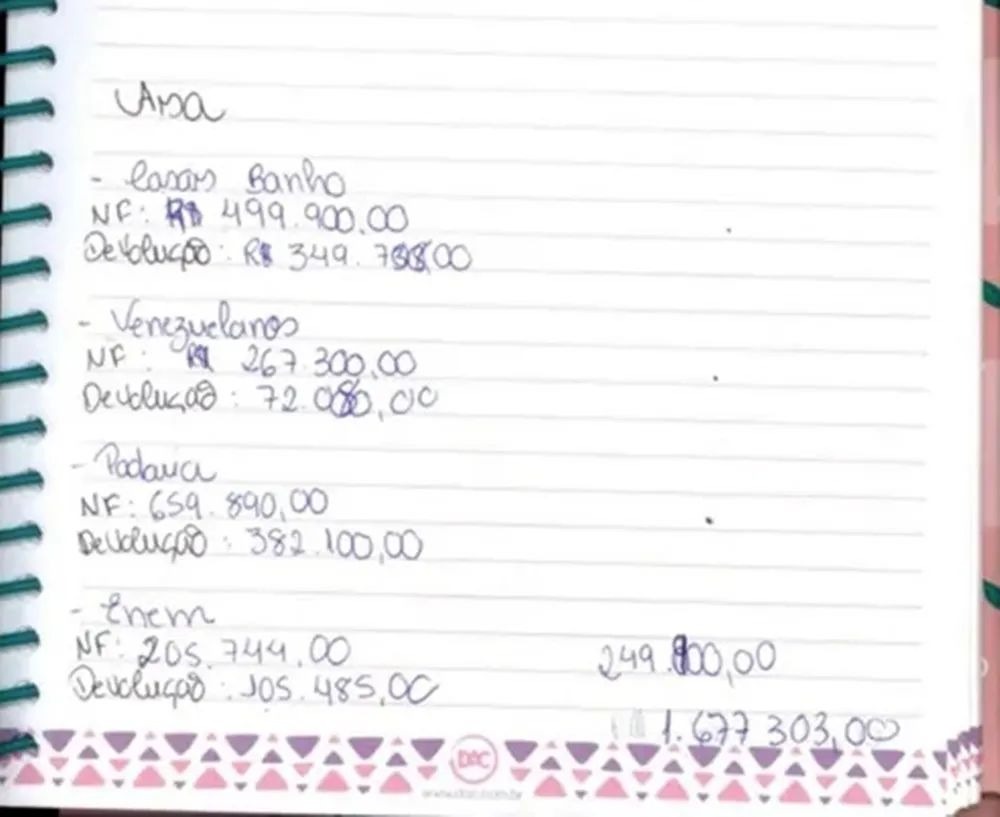 - Casas Banho
NF: R$ 499.900.00
Devolução: R$ 349. 00
- Venezuelanos
NF: R$ 267.300,00
Devolução: 72.080,00
- Padaria
NF: 659.890,00
Devolução: 382.100,00
- Enem
NF: 205.744.00
249.800,00
Devolução: 105.485,00
1.677.303,00
DAC
www.dac.com.br